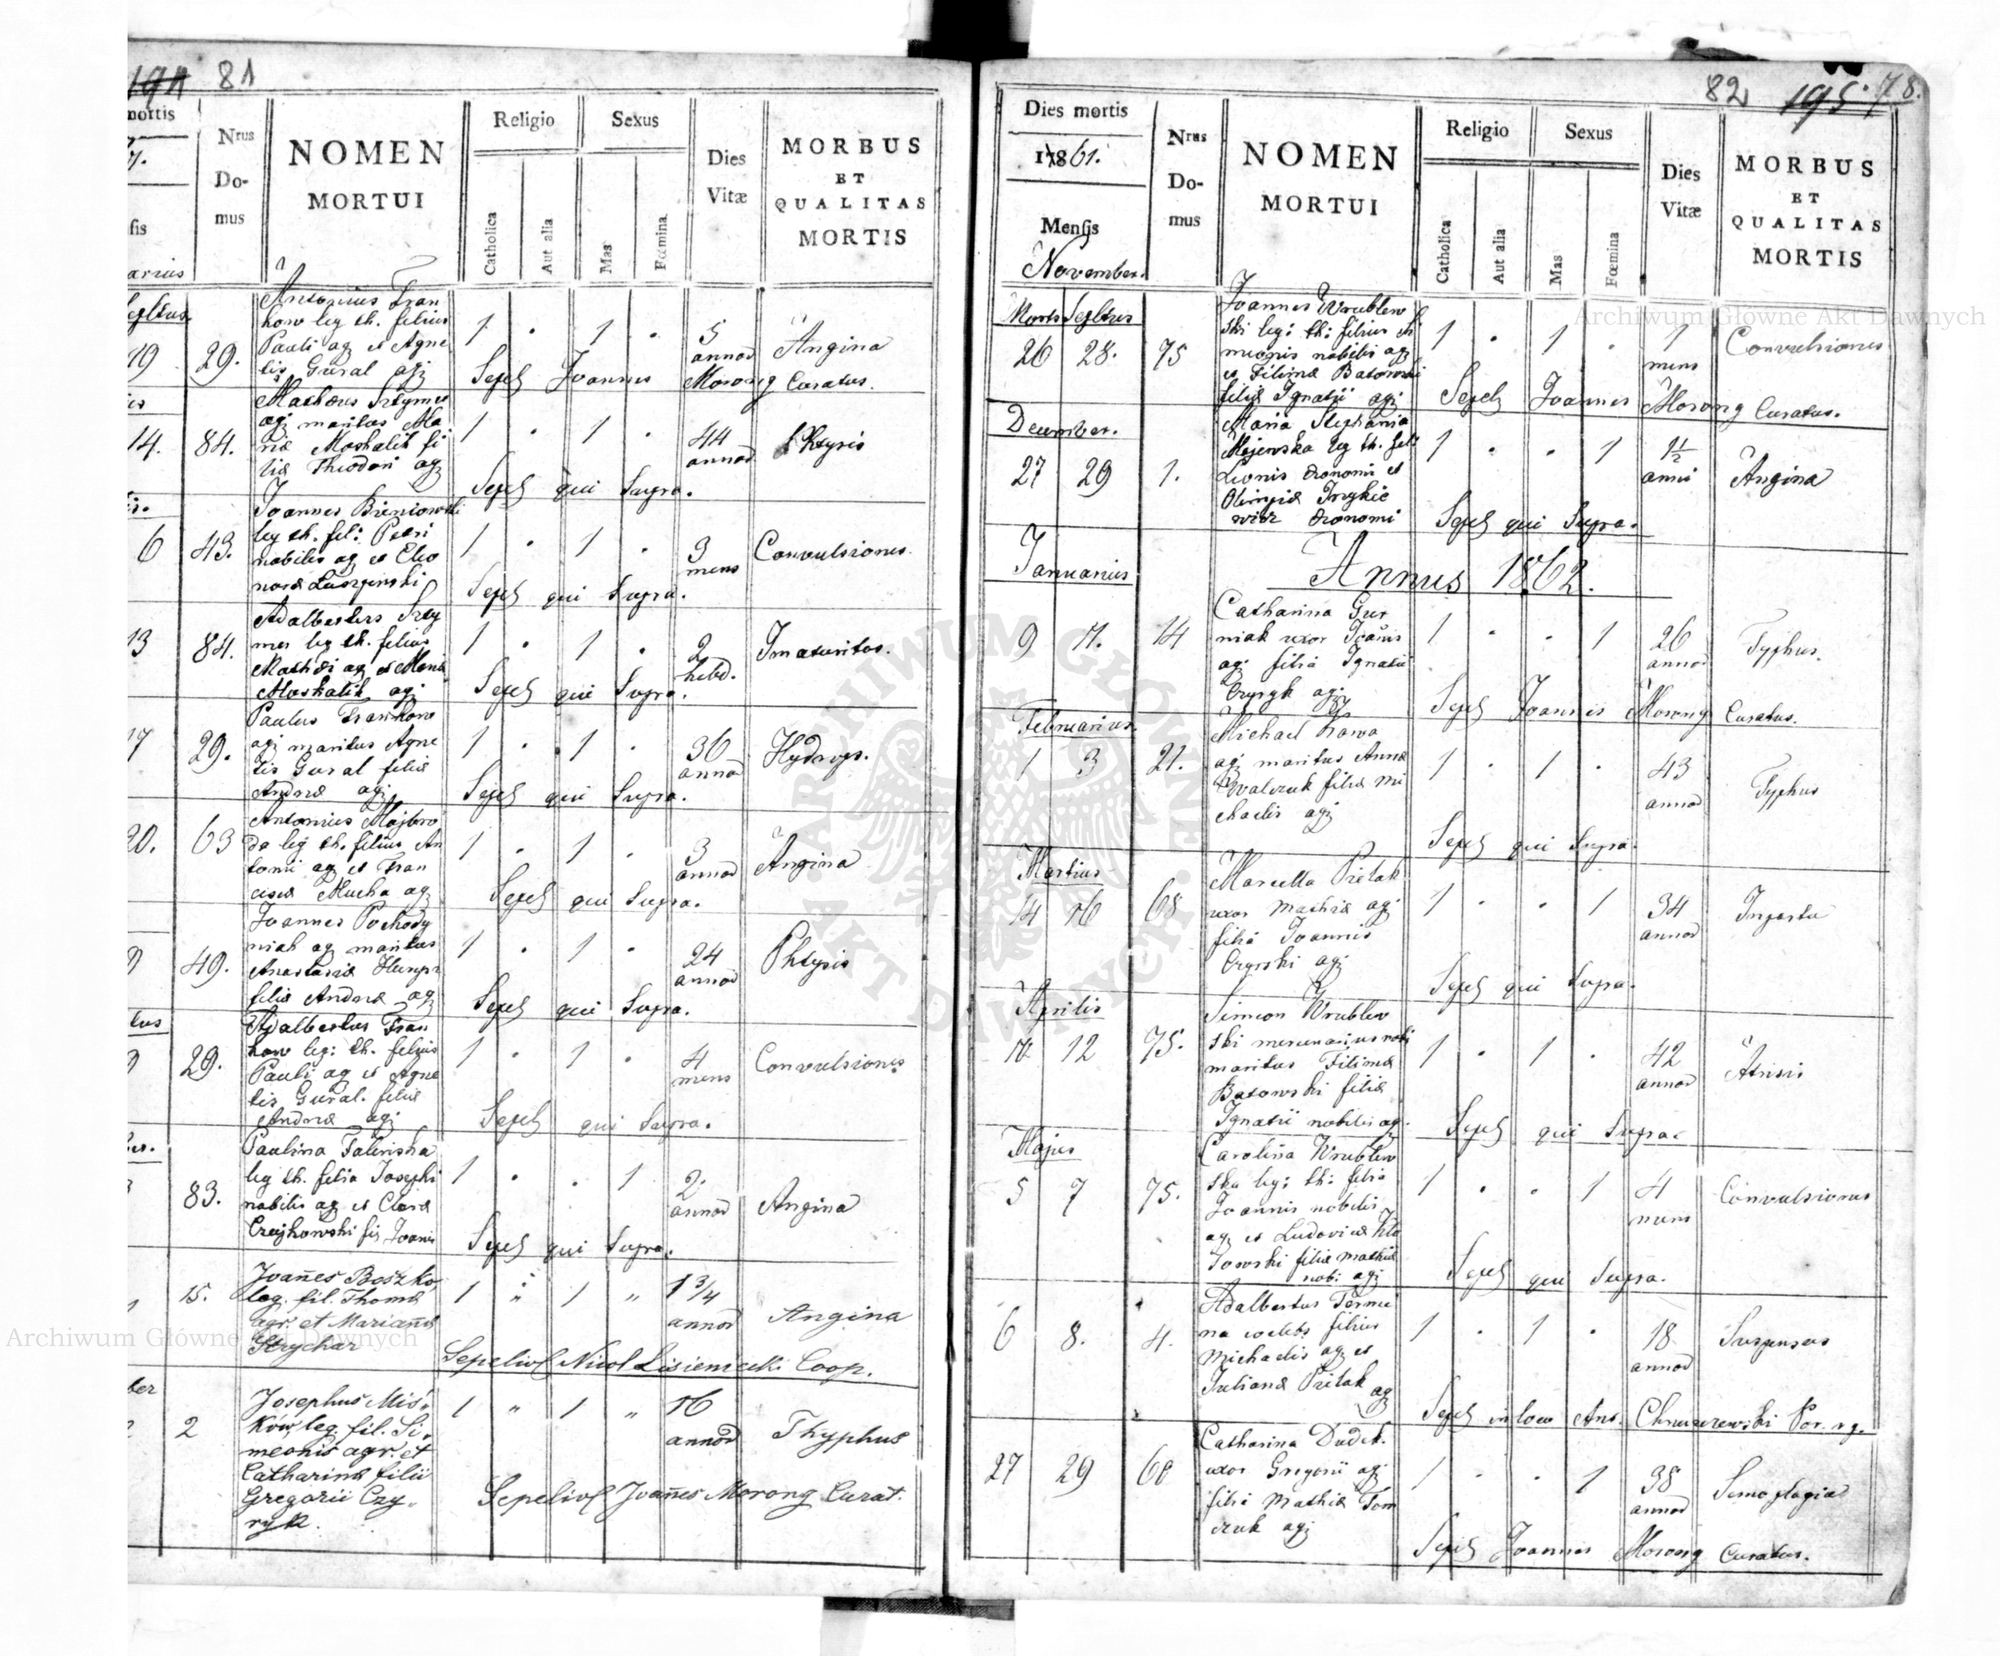 194 81
mortis
Nrus
Do-
mus
NOMEN
MORTUI
Religio
Sexus
Catholica
Aut alia
Mas
Fœmina
Dies
Vitæ
MORBUS
ET
QUALITAS
MORTIS
arius
Antonius Fran
kow leg th. filius
Pauli ag et Agne
tis Gural agr
19 29. 1 . 1 . 5
annor
Angina
Sepel Joannes Morong Curatus.
Matheus Szymes
agr maritus Ma
riæ Moskalik fi
liæ Theodori agr
14. 84. 1 . 1 . 44
annor
Phtysis
Sepel qui Supra.
Joannes Bieniowski
leg th. fil: Petri
nobilis ag et Eleo
noræ
6 43. 1 . 1 . 3
mens
Convulsiones.
Sepel qui Supra.
Adalbertus Szy
mes leg th. filius
Mathæi ag et Mariæ
Moskalik agr
13 84. 1 . 1 . 2
hebd.
Imaturitas.
Sepel qui Supra.
Paulus Frankow
agr maritus Agne
tis Gural filiæ
Andreæ agr
17 29. 1 . 1 . 36
annor
Hydrops.
Sepel qui Supra.
Antonius Majbro
da leg th. filius An
tonii ag et Fran
ciscæ Mucha agr
20. 63 1 . 1 . 3
annor
Angina
Sepel qui Supra.
Joannes Pochody
niak ag maritus
Anastasiæ
filiæ Andreæ agr
49. 1 . 1 . 24
annor
Phtysis
Sepel qui Supra.
Adalbertus Fran
kow leg: th. filius
Pauli ag et Agne
tis Gural. filiæ
Andreæ agr
29. 1 . 1 . 4
mens
Convulsiones
Sepel qui Supra.
Paulina Falinska
leg th. filia Josephi
nobilis ag et Claræ
Czajkowski fil Joannis
83. 1 . . 1 2.
annor
Angina
Sepel qui Supra.
Joañes Boszko
leg. fil. Thomæ
agr. et Mariañæ
Strychar
15. 1 " 1 " 1 3/4
annor
Angina
Sepelivit Nicol Lisieniecki Coop.
Josephus Miś-
ków, leg. fil. Si-
meonis agr. et
Catharinæ filii
Gregorii Czy-
ryk.
2 1 " 1 " 16
annor
Thyphus
Sepelivit Joañes Morong Curat.
82 195. 78.
Dies mortis
1861.
Mensis
November.
Nrus
Do-
mus
NOMEN
MORTUI
Religio
Sexus
Catholica
Aut alia
Mas
Fœmina
Dies
Vitæ
MORBUS
ET
QUALITAS
MORTIS
Mortis Sepltus
Joannes Wrublew
ski leg: th: filius Si
meonis nobilis ag
et Filimæ Batowski
filiæ Ignatii agr
26 28. 75 1 . 1 . 1
mens
Convulsiones
Sepel Joannes Morong Curatus.
December.
Maria Stephania
Majewska leg th. fil:
Leonis œconomi et
Olimpiæ
œconomi
27 29 1. 1 . . 1 1 1/2
anni
Angina
Sepel qui Supra.
Januarius
Annus 1862.
Catharina Gur
niak uxor Joañis
agr filia Ignatii
Czyryk agr
9 11. 14 1 . . 1 26
annor
Typhus.
Sepel Joannes Morong Curatus.
Februarius.
Michael Kawa
agr maritus Annæ
Kowalczuk filiæ Mi
chaelis agr
1 3 21. 1 . 1 . 43
annor
Typhus
Sepel qui Supra.
Martius
Marcella Pietak
uxor Mathiæ agr
filia Joannis
Czyrski agr
14 16 68 1 . . 1 34
annor
Sepel qui Supra.
Aprilis
Simeon Wrublew
ski mercenarius nobi
maritus Filimæ
Batowski filiæ
Ignatii nobilis ag.
10 12 75. 1 . 1 . 42
annor
Sepel qui Supra.
Majus
Carolina Wrublew
ska leg: th: filia
Joannis nobilis
ag et Ludovicæ Kło
sowski filiæ Mathiæ
nob: agr
5 7 75. 1 . . 1 4
mens
Convulsiones
Sepel qui Supra.
Adalbertus Termi
na cœlebs filius
Michaelis ag et
Julianæ Pietak ag
6 8. 4. 1 . 1 . 18
annor
Suspensus
Sepel in loco Ant. Par. rg.
Catharina Dudek
uxor Gregorii agr
filia Mathiæ Tom
czuk agr
27 29 60 1 . . 1 38
annor
Sepel Joannes Morong Curatus.
Archiwum Główne Akt Dawnych
Archiwum Główne Akt Dawnych
ARCHIWUM GŁÓWNE AKT DAWNYCH